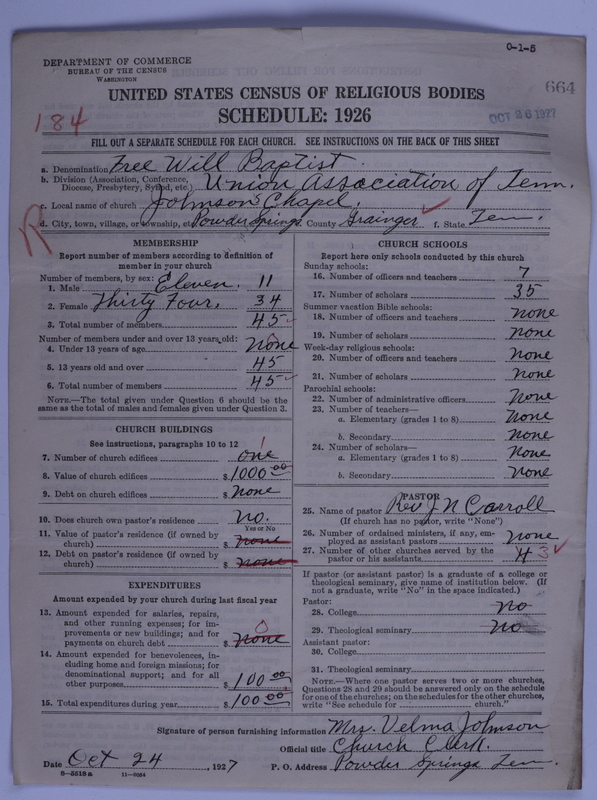 O-1-5
DEPARTMENT OF COMMERCE
BUREAU OF THE CENSUS
WASHINGTON
664
UNITED STATES CENSUS OF RELIGIOUS BODIES
SCHEDULE: 1926
OCT 26 1927
184
FILL OUT A SEPARATE SCHEDULE FOR EACH CHURCH. SEE INSTRUCTIONS ON THE BACK OF THIS SHEET
a. Denomination Free Will Baptist.
b. Division (Association, Conference, Diocese, Presbytery, Synod, etc.) Union Association of Tenn.
c. Local name of church Johnson's Chapel.
d. City, town, village, or township, or Powder Springs. County Grainger f. State Ten.
R
MEMBERSHIP
Report number of members according to definition of
member in your church
Number of members, by sex:
1. Male Eleven. 11
2. Female Thirty Four. 34
3. Total number of members 45
Number of members under and over 13 years old:
4. Under 13 years of age none
5. 13 years old and over 45
6. Total number of members 45
NOTE.—The total given under Question 6 should be
same as the total of males and females given under Question 3.
CHURCH BUILDINGS
See instructions, paragraphs 10 to 12
7. Number of church edifices one 1
8. Value of church edifices $1000.00
9. Debt on church edifices $ none
10. Does church own pastor's residence no.
Yes or No
11. Value of pastor's residence (if owned by
church) $ none
12. Debt on pastor's residence (if owned by
church) $ none
EXPENDITURES
Amount expended by your church during last fiscal year
13. Amount expended for salaries, repairs,
and other running expenses; for im-
provements or new buildings; and for
payments on church debt $ none 0
14. Amount expended for benevolences, in-
cluding home and foreign missions; for
denominational support; and for all
other purposes $ 100.00
15. Total expenditures during year $ 100.00
CHURCH SCHOOLS
Report here only schools conducted by this church
Sunday schools:
16. Number of officers and teachers 7
17. Number of scholars 35
Summer vacation Bible schools:
18. Number of officers and teachers none
19. Number of scholars none
Week-day religious schools:
20. Number of officers and teachers none
21. Number of scholars none
Parochial schools:
22. Number of administrative officers none
23. Number of teachers—
a. Elementary (grades 1 to 8) none
b. Secondary none
24. Number of scholars—
a. Elementary (grades 1 to 8) none
b. Secondary none
PASTOR
25. Name of pastor Rev J N Carroll
(If church has no pastor, write "None")
26. Number of ordained ministers, if any, em-
ployed as assistant pastors none
27. Number of other churches served by the
pastor or his assistants 4 3
If pastor (or assistant pastor) is a graduate of a college or
theological seminary, give name of institution below. (If
not a graduate, write "No" in the space indicated.)
Pastor:
28. College no
29. Theological seminary no
Assistant pastor:
30. College
31. Theological seminary
NOTE.—Where one pastor serves two or more churches,
Questions 28 and 29 should be answered only on the schedule
for one of the churches; on the schedules for the other churches,
write "See schedule for church."
Signature of person furnishing information Mrs. Velma Johnson
Official title Church Clerk.
Date Oct 24, 1927 P. O. Address Powder Springs Ten.
8-5518 a 11-9064